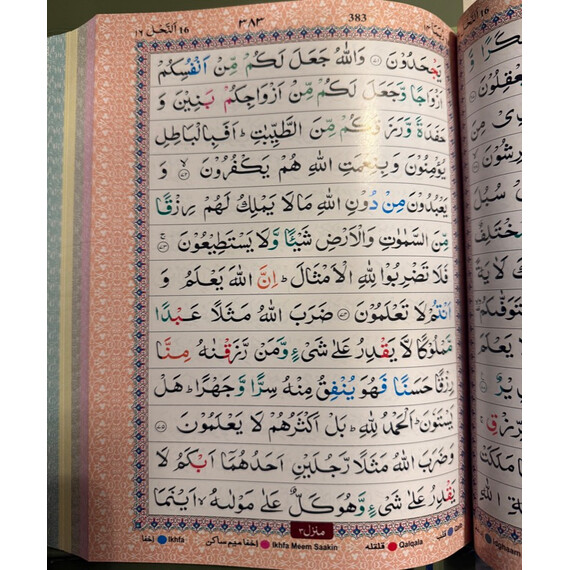 ١٦ اَلنَّحْل 16
٣٨٣
383
يَجْحَدُوْنَ ۝٧١ وَاللّٰهُ جَعَلَ لَكُمْ مِّنْ اَنْفُسِكُمْ
اَزْوَاجًا وَّجَعَلَ لَكُمْ مِّنْ اَزْوَاجِكُمْ بَنِيْنَ وَ
حَفَدَةً وَّرَزَقَكُمْ مِّنَ الطَّيِّبٰتِ ؕ اَفَبِالْبَاطِلِ
يُؤْمِنُوْنَ وَبِنِعْمَتِ اللّٰهِ هُمْ يَكْفُرُوْنَ ۝٧٢ۙ وَ
يَعْبُدُوْنَ مِنْ دُوْنِ اللّٰهِ مَا لَا يَمْلِكُ لَهُمْ رِزْقًا
مِّنَ السَّمٰوٰتِ وَالْاَرْضِ شَيْـًٔا وَّلَا يَسْتَطِيْعُوْنَ ۝٧٣ۚ
فَلَا تَضْرِبُوْا لِلّٰهِ الْاَمْثَالَ ؕ اِنَّ اللّٰهَ يَعْلَمُ وَ
اَنْتُمْ لَا تَعْلَمُوْنَ ۝٧٤ ضَرَبَ اللّٰهُ مَثَلًا عَبْدًا
مَّمْلُوْكًا لَّا يَقْدِرُ عَلٰى شَيْءٍ وَّمَنْ رَّزَقْنٰهُ مِنَّا
رِزْقًا حَسَنًا فَهُوَ يُنْفِقُ مِنْهُ سِرًّا وَّجَهْرًا ؕ هَلْ
يَسْتَوٗنَ ؕ اَلْحَمْدُ لِلّٰهِ ؕ بَلْ اَكْثَرُهُمْ لَا يَعْلَمُوْنَ ۝٧٥
وَضَرَبَ اللّٰهُ مَثَلًا رَّجُلَيْنِ اَحَدُهُمَاۤ اَبْكَمُ لَا
يَقْدِرُ عَلٰى شَيْءٍ وَّهُوَ كَلٌّ عَلٰى مَوْلٰىهُ ۙ اَيْنَمَا
منزل ٣
اِخفا Ikhfa اِخفا میم ساکن Ikhfa Meem Saakin قلقلہ Qalqala قلب